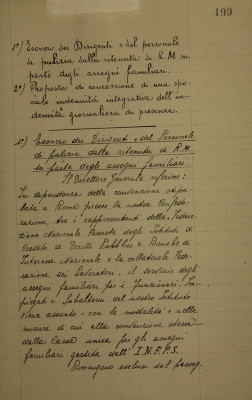 199
1°) Esonero dei Dirigenti e del personale
di pulizia dalla ritenuta di R.M. su
parte degli assegni familiari.
2°) Proposta di concessione di una spe-
ciale indennità integrativa dell'in-
dennità giornaliera di presenza.
1°) Esonero dei Dirigenti e del Personale
di pulizia dalla ritenuta di R.M.
su parte degli assegni familiari.
Il Direttore Generale riferisce:
In dipendenza della convenzione stipu-
lata a Roma presso la nostra Confede-
razione, tra i rappresentanti della Federa-
zione Nazionale Fascista degli Istituti di
Credito di Diritto Pubblico e Banche di
Interesse Nazionale e la collaterale Fede-
razione dei Lavoratori, il servizio degli
assegni familiari per i Funzionari, Im-
piegati e Subalterni del nostro Istituto
viene assunto - con le modalità e nella
misura di cui alla convenzione stessa
dalla Cassa unica per gli assegni
familiari gestita dall'I.N.F.P.S.
Rimangono esclusi dal passag-